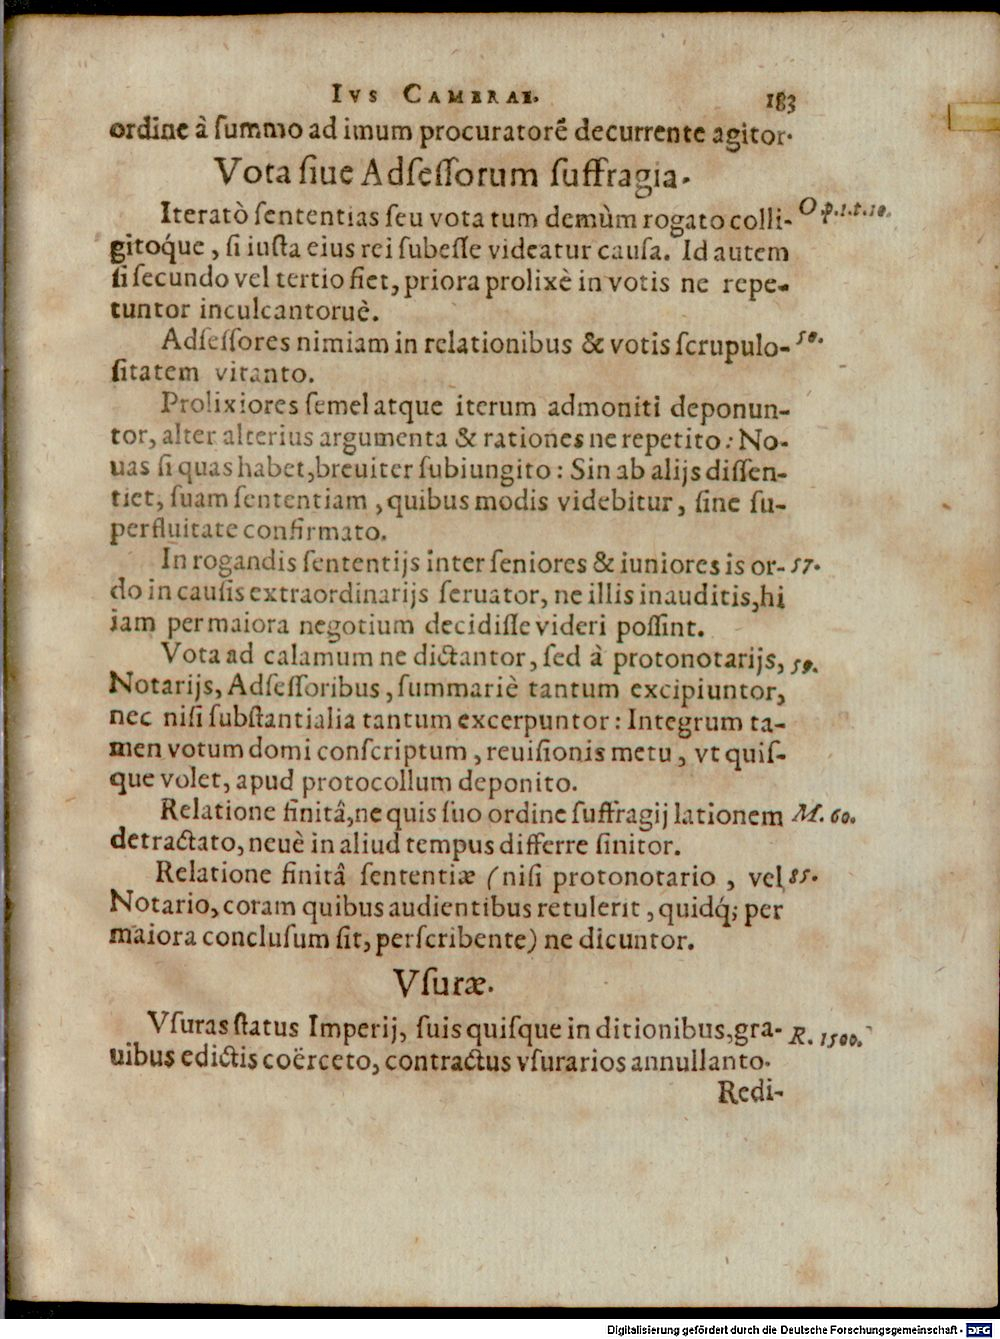 IVS CAMERAE. 183
ordine à summo ad imum procuratorē decurrente agitor.
Vota siue Adsessorum suffragia.
Iteratò sententias seu vota tum demùm rogato colli- O p. 1. t. 10.
gitoq́ue, si iusta eius rei subesse videatur causa. Id autem
si secundo vel tertio fiet, priora prolixè in votis ne repe-
tuntor inculcantoruè.
Adsessores nimiam in relationibus & votis scrupulo- 50.
sitatem vitanto.
Prolixiores semel atque iterum admoniti deponun-
tor, alter alterius argumenta & rationes ne repetito: No-
uas si quas habet, breuiter subiungito: Sin ab alijs dissen-
tiet, suam sententiam, quibus modis videbitur, sine su-
perfluitate confirmato.
In rogandis sententijs inter seniores & iuniores is or- 57.
do in causis extraordinarijs seruator, ne illis inauditis, hi
iam per maiora negotium decidisse videri possint.
Vota ad calamum ne dictantor, sed à protonotarijs, 59.
Notarijs, Adsessoribus, summariè tantum excipiuntor,
nec nisi substantialia tantum excerpuntor: Integrum ta-
men votum domi conscriptum, reuisionis metu, vt quis-
que volet, apud protocollum deponito.
Relatione finitâ, ne quis suo ordine suffragij lationem M. 60.
detractato, neuè in aliud tempus differre sinitor.
Relatione finitâ sententiæ (nisi protonotario, vel 85.
Notario, coram quibus audientibus retulerit, quidq́; per
maiora conclusum sit, perscribente) ne dicuntor.
Vsuræ.
Vsuras status Imperij, suis quisque in ditionibus, gra- R. 1500.
uibus edictis coërceto, contractus vsurarios annullanto.
Redi-
Digitalisierung gefördert durch die Deutsche Forschungsgemeinschaft - DFG